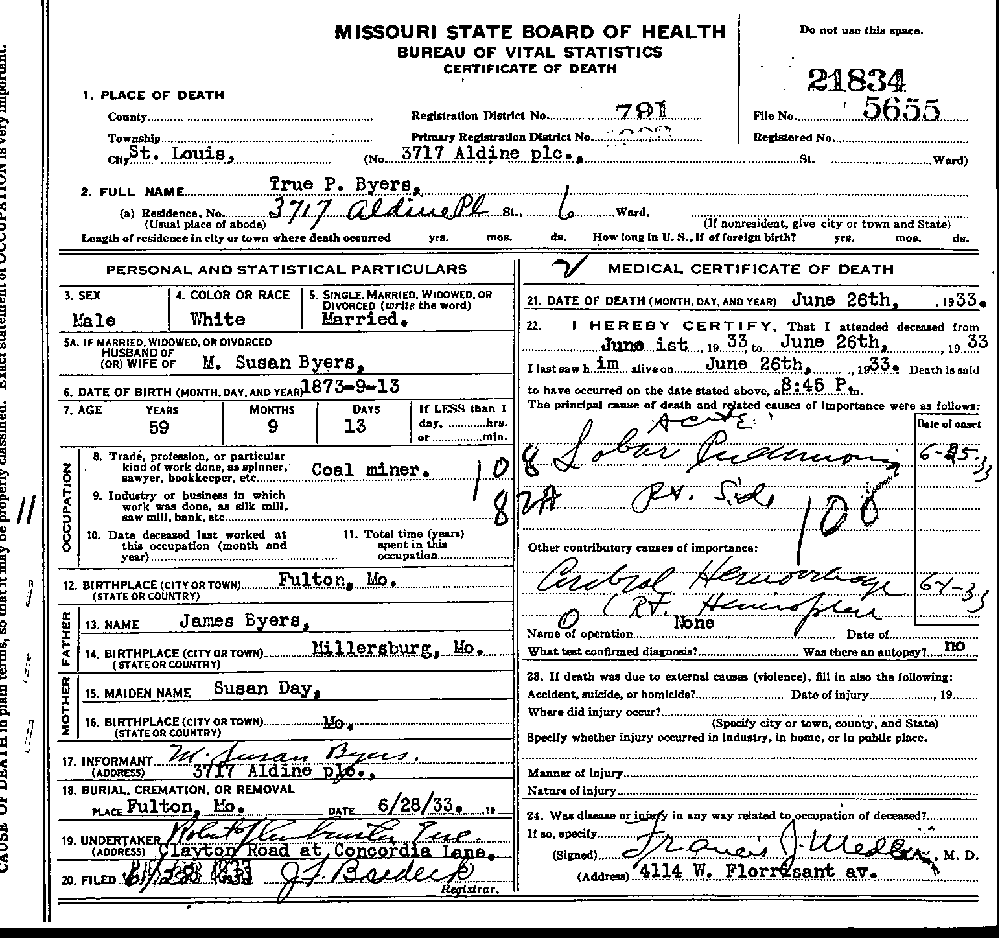 MISSOURI STATE BOARD OF HEALTH
BUREAU OF VITAL STATISTICS
CERTIFICATE OF DEATH
Do not use this space.
21834
1. PLACE OF DEATH
County
Registration District No. 791
File No. 5655
Township
Primary Registration District No.
Registered No.
City St. Louis, (No. 3717 Aldine plc., St. Ward)
2. FULL NAME True P. Byers,
(a) Residence, No. 3717 Aldine Pl St., 6 Ward.
(Usual place of abode) (If nonresident, give city or town and State)
Length of residence in city or town where death occurred yrs. mos. ds. How long in U. S., if of foreign birth? yrs. mos. ds.
PERSONAL AND STATISTICAL PARTICULARS
3. SEX
Male
4. COLOR OR RACE
White
5. SINGLE, MARRIED, WIDOWED, OR
DIVORCED (write the word)
Married.
5A. IF MARRIED, WIDOWED, OR DIVORCED
HUSBAND OF
(OR) WIFE OF M. Susan Byers,
6. DATE OF BIRTH (MONTH, DAY, AND YEAR) 1873-9-13
7. AGE YEARS MONTHS DAYS If LESS than 1
59 9 13 day, hrs.
or min.
OCCUPATION
8. Trade, profession, or particular
kind of work done, as spinner,
sawyer, bookkeeper, etc. Coal miner.
9. Industry or business in which
work was done, as silk mill,
saw mill, bank, etc.
10. Date deceased last worked at
this occupation (month and
year)
11. Total time (years)
spent in this
occupation
12. BIRTHPLACE (CITY OR TOWN) Fulton, Mo.
(STATE OR COUNTRY)
FATHER
13. NAME James Byers,
14. BIRTHPLACE (CITY OR TOWN) Millersburg, Mo.
(STATE OR COUNTRY)
MOTHER
15. MAIDEN NAME Susan Day,
16. BIRTHPLACE (CITY OR TOWN) Mo.
(STATE OR COUNTRY)
17. INFORMANT M. Susan Byers.
(ADDRESS) 3717 Aldine plc.,
18. BURIAL, CREMATION, OR REMOVAL
PLACE Fulton, Mo. DATE 6/28/33. 19
19. UNDERTAKER
(ADDRESS) Clayton Road at Concordia Lane.
20. FILED
Registrar.
MEDICAL CERTIFICATE OF DEATH
21. DATE OF DEATH (MONTH, DAY, AND YEAR) June 26th, , 1933.
22. I HEREBY CERTIFY, That I attended deceased from
June 1st , 19 33, to June 26th, , 19 33
I last saw h im alive on June 26th, , 1933. Death is said
to have occurred on the date stated above, at 8:45 P. m.
The principal cause of death and related causes of importance were as follows:
Date of onset
Acute
108 Lobar Pneumonia 6-25-33
82A Rt. Side
108
Other contributory causes of importance:
Cerebral Hemorrhage 6-1-33
(Rt. Hemiplegia
Name of operation None Date of
What test confirmed diagnosis? Was there an autopsy? no
23. If death was due to external causes (violence), fill in also the following:
Accident, suicide, or homicide? Date of injury , 19
Where did injury occur?
(Specify city or town, county, and State)
Specify whether injury occurred in industry, in home, or in public place.
Manner of injury
Nature of injury
24. Was disease or injury in any way related to occupation of deceased?
If so, specify
(Signed) Francis J. , M. D.
(Address) 4114 W. Florrisant av.